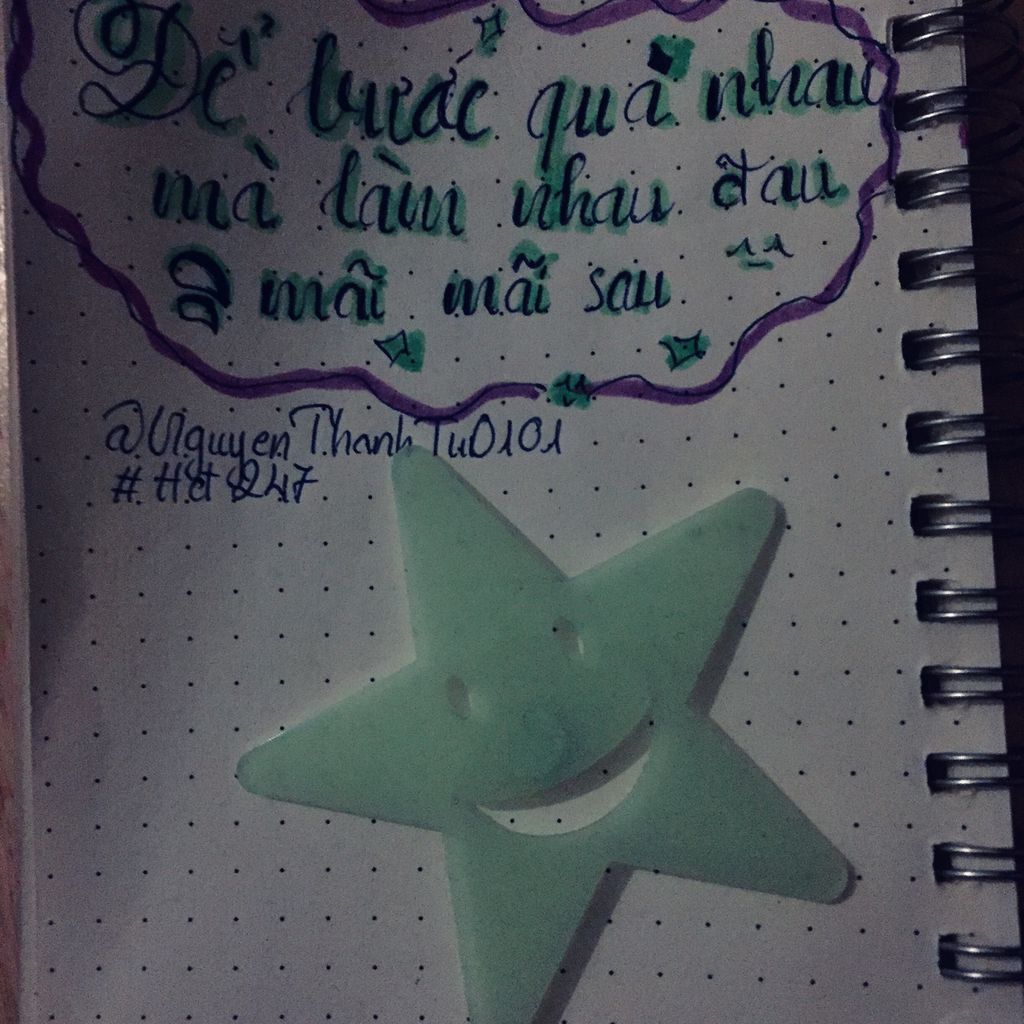 Để bước qua nhau
mà làm nhau đau
mãi mãi sau
@NguyenThanhTu0101